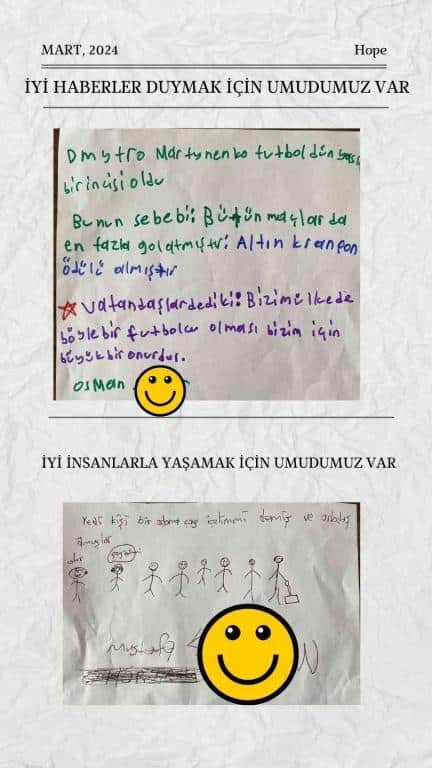 MART, 2024
Hope
İYİ HABERLER DUYMAK İÇİN UMUDUMUZ VAR
Dmytro Martynenko futbol dünyası
birincisi oldu
Bunun sebebi: Bütün maçlarda
en fazla gol atmıştır: Altın kranpon
ödülü almıştır
Vatandaşlar dediki: Bizim ülkede
böyle bir futbolcu olması bizim için
büyük bir onurdur.
OSMAN
İYİ İNSANLARLA YAŞAMAK İÇİN UMUDUMUZ VAR
Yedi kişi bir adama çay içelimmi demiş ve arkadaş
olmuşlar
olur
Mustafa
N